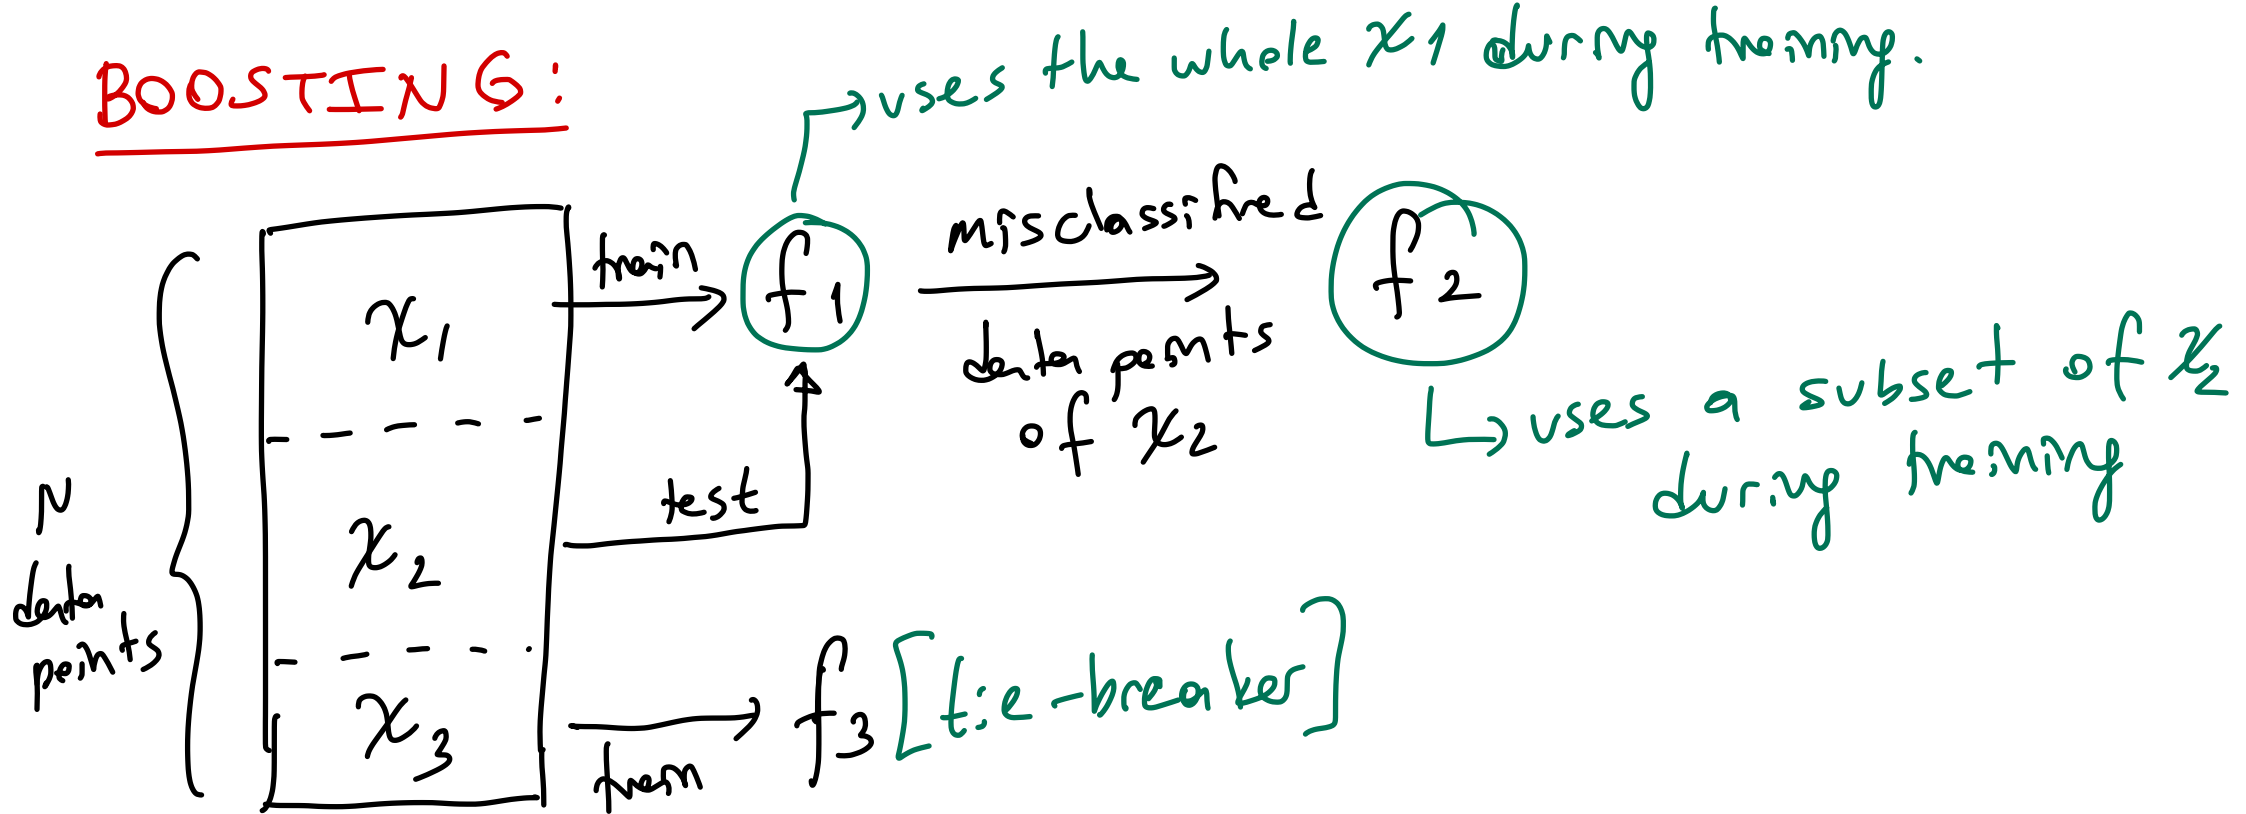 BOOSTING:
uses the whole x1 during training.
N
data
points
x1
x2
x3
train
f1
test
misclassified
data points
of x2
f2
uses a subset of x2
during training
train
f3 [tie-breaker]